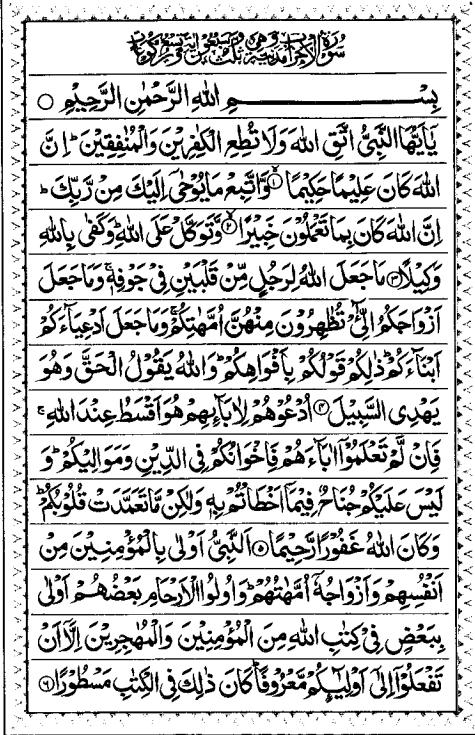 سورة الاحزاب مدنية وهي ثلث وسبعون اية وتسع ركوعات
بِسْمِ اللهِ الرَّحْمٰنِ الرَّحِيْمِ ○
يٰۤاَيُّهَا النَّبِيُّ اتَّقِ اللهَ وَلَا تُطِعِ الْكٰفِرِيْنَ وَالْمُنٰفِقِيْنَ ؕ اِنَّ
اللهَ كَانَ عَلِيْمًا حَكِيْمًا ۙ﴿۱﴾ وَّاتَّبِعْ مَا يُوْحٰۤى اِلَيْكَ مِنْ رَّبِّكَ ؕ
اِنَّ اللهَ كَانَ بِمَا تَعْمَلُوْنَ خَبِيْرًا ۙ﴿۲﴾ وَّتَوَكَّلْ عَلَى اللهِ ؕ وَكَفٰى بِاللهِ
وَكِيْلًا ﴿۳﴾ مَا جَعَلَ اللهُ لِرَجُلٍ مِّنْ قَلْبَيْنِ فِيْ جَوْفِهٖ ۚ وَمَا جَعَلَ
اَزْوَاجَكُمُ الّٰٓـِٔيْ تُظٰهِرُوْنَ مِنْهُنَّ اُمَّهٰتِكُمْ ۚ وَمَا جَعَلَ اَدْعِيَآءَكُمْ
اَبْنَآءَكُمْ ؕ ذٰلِكُمْ قَوْلُكُمْ بِاَفْوَاهِكُمْ ؕ وَاللهُ يَقُوْلُ الْحَقَّ وَهُوَ
يَهْدِي السَّبِيْلَ ﴿۴﴾ اُدْعُوْهُمْ لِاٰبَآئِهِمْ هُوَ اَقْسَطُ عِنْدَ اللهِ ۚ
فَاِنْ لَّمْ تَعْلَمُوْۤا اٰبَآءَهُمْ فَاِخْوَانُكُمْ فِي الدِّيْنِ وَمَوَالِيْكُمْ ؕ وَ
لَيْسَ عَلَيْكُمْ جُنَاحٌ فِيْمَاۤ اَخْطَاْتُمْ بِهٖ وَلٰكِنْ مَّا تَعَمَّدَتْ قُلُوْبُكُمْ ؕ
وَكَانَ اللهُ غَفُوْرًا رَّحِيْمًا ﴿۵﴾ اَلنَّبِيُّ اَوْلٰى بِالْمُؤْمِنِيْنَ مِنْ
اَنْفُسِهِمْ وَاَزْوَاجُهٗۤ اُمَّهٰتُهُمْ ؕ وَاُولُوا الْاَرْحَامِ بَعْضُهُمْ اَوْلٰى
بِبَعْضٍ فِيْ كِتٰبِ اللهِ مِنَ الْمُؤْمِنِيْنَ وَالْمُهٰجِرِيْنَ اِلَّاۤ اَنْ
تَفْعَلُوْۤا اِلٰۤى اَوْلِيٰٓئِكُمْ مَّعْرُوْفًا ؕ كَانَ ذٰلِكَ فِي الْكِتٰبِ مَسْطُوْرًا ﴿۶﴾